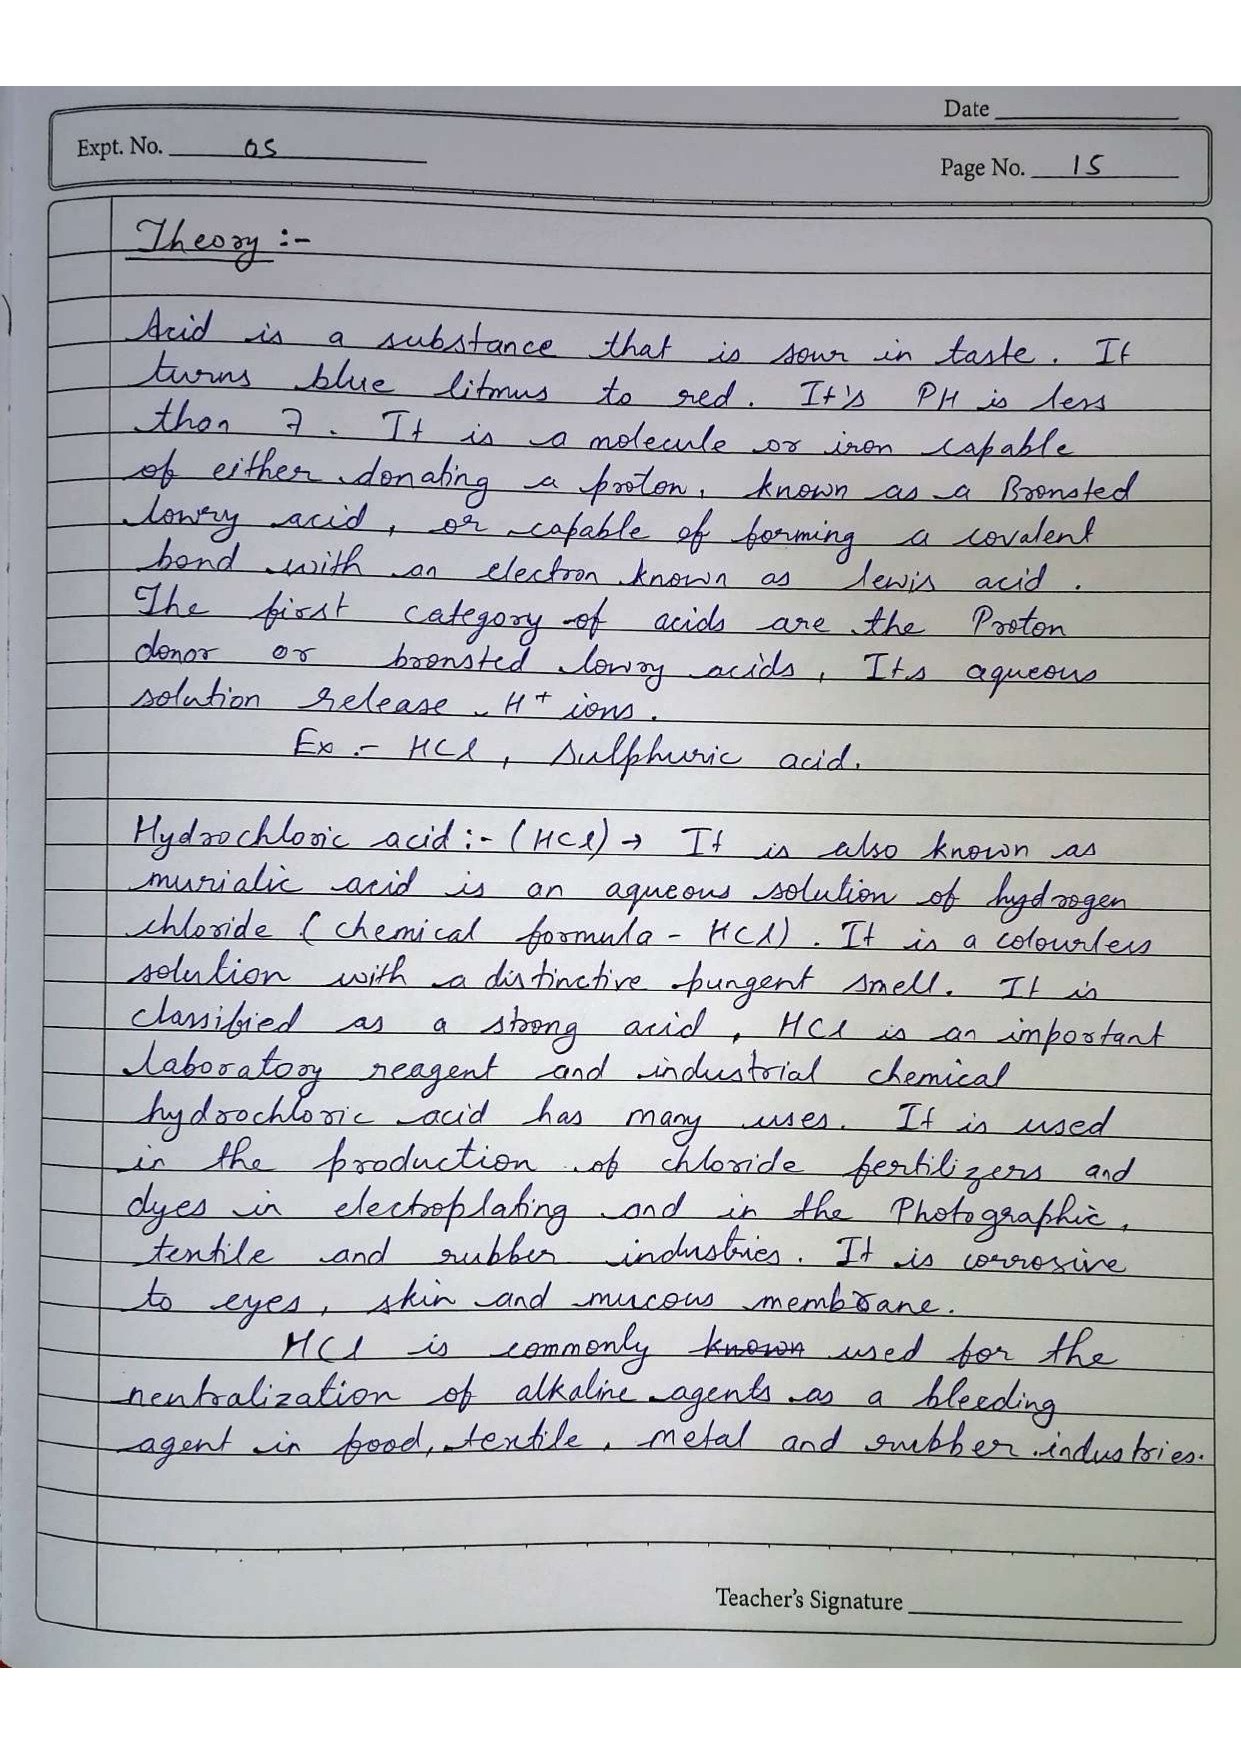 Date
Expt. No. 05
Page No. 15
Theory :-
Acid is a substance that is sour in taste. It
turns blue litmus to red. It's PH is less
than 7. It is a molecule or iron capable
of either donating a proton, known as a Bronsted
lowry acid, or capable of forming a covalent
bond with an electron known as lewis acid.
The first category of acids are the Proton
donor or bronsted lowry acids, Its aqueous
solution release H+ ions.
Ex :- HCl, Sulphuric acid.
Hydrochloric acid :- (HCl) → It is also known as
muriatic acid is an aqueous solution of hydrogen
chloride (chemical formula - HCl). It is a colourless
solution with a distinctive pungent smell. It is
classified as a strong acid, HCl is an important
laboratory reagent and industrial chemical
hydrochloric acid has many uses. It is used
in the production of chloride fertilizers and
dyes in electroplating and in the Photographic,
textile and rubber industries. It is corrosive
to eyes, skin and mucous membrane.
HCl is commonly known used for the
neutralization of alkaline agents as a bleeding
agent in food, textile, metal and rubber industries.
Teacher's Signature